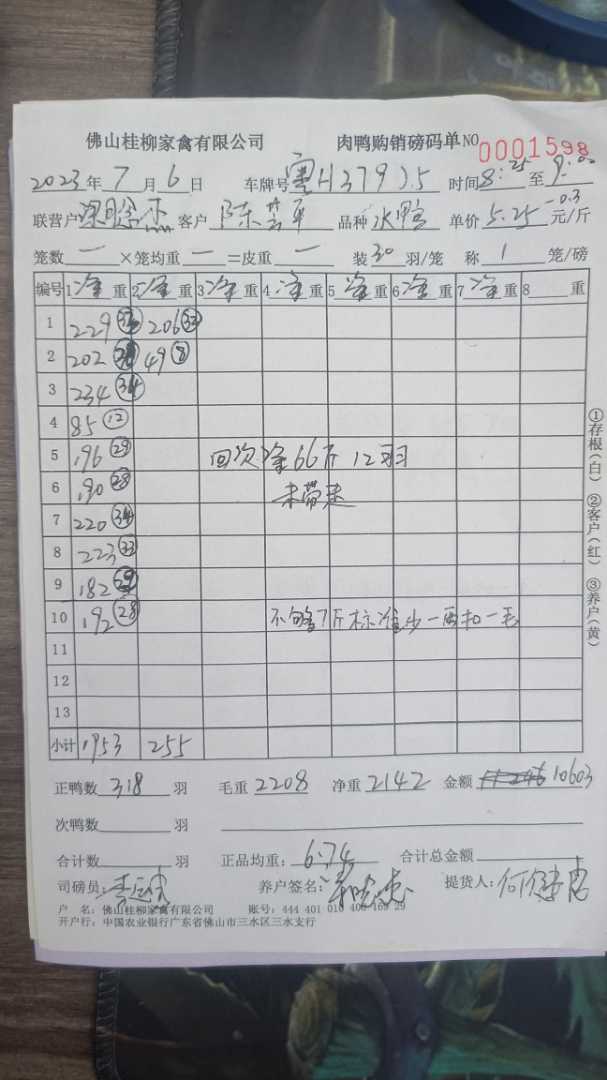 佛山桂柳家禽有限公司 肉鸭购销磅码单 NO 0001598
2023年7月6日 车牌号 粤H379 时间8:25至9:00
联营户 客户 陈 品种 水鸭 单价 5.25 -0.3 元/斤
笼数 一 ×笼均重 一 =皮重 一 装30羽/笼 称 1 笼/磅
编号 1净重 2净重 3净重 4净重 5净重 6净重 7净重 8 重
1 229 206
2 202 49 ⑧
3 234 34
4 85 12
5 196 29 回次净66斤12羽
6 190 28 未带走
7 220 34
8 223 33
9 182
10 192 28 不够7斤标准少一两扣一毛
11
12
13
小计 1953 255
正鸭数 318 羽 毛重 2208 净重 2142 金额 10603
次鸭数 羽
合计数 羽 正品均重: 6.74 合计总金额
司磅员: 养户签名: 提货人:
户 名: 佛山桂柳家禽有限公司 账号: 444 401 010 400 169 29
开户行: 中国农业银行广东省佛山市三水区三水支行
①存根(白) ②客户(红) ③养户(黄)